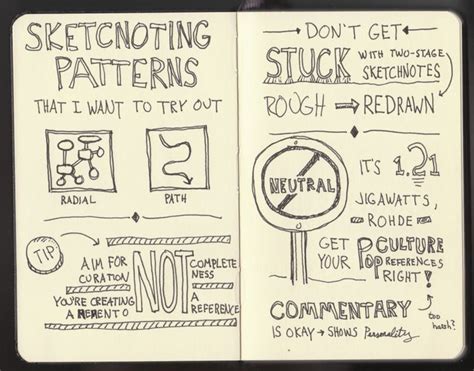 SKETCNOTING
PATTERNS
THAT I WANT TO TRY OUT
RADIAL
PATH
TIP
AIM FOR
CURATION
YOU'RE CREATING
A MEMENTO
NOT
COMPLETE
NESS
A
REFERENCE
DON'T GET
STUCK WITH TWO-STAGE
SKETCHNOTES
ROUGH ⇒ REDRAWN
NEUTRAL
IT'S 1.21
JIGAWATTS,
ROHDE
GET
YOUR
POP CULTURE
REFERENCES
RIGHT!
COMMENTARY
too
harsh?
IS OKAY → SHOWS Personality